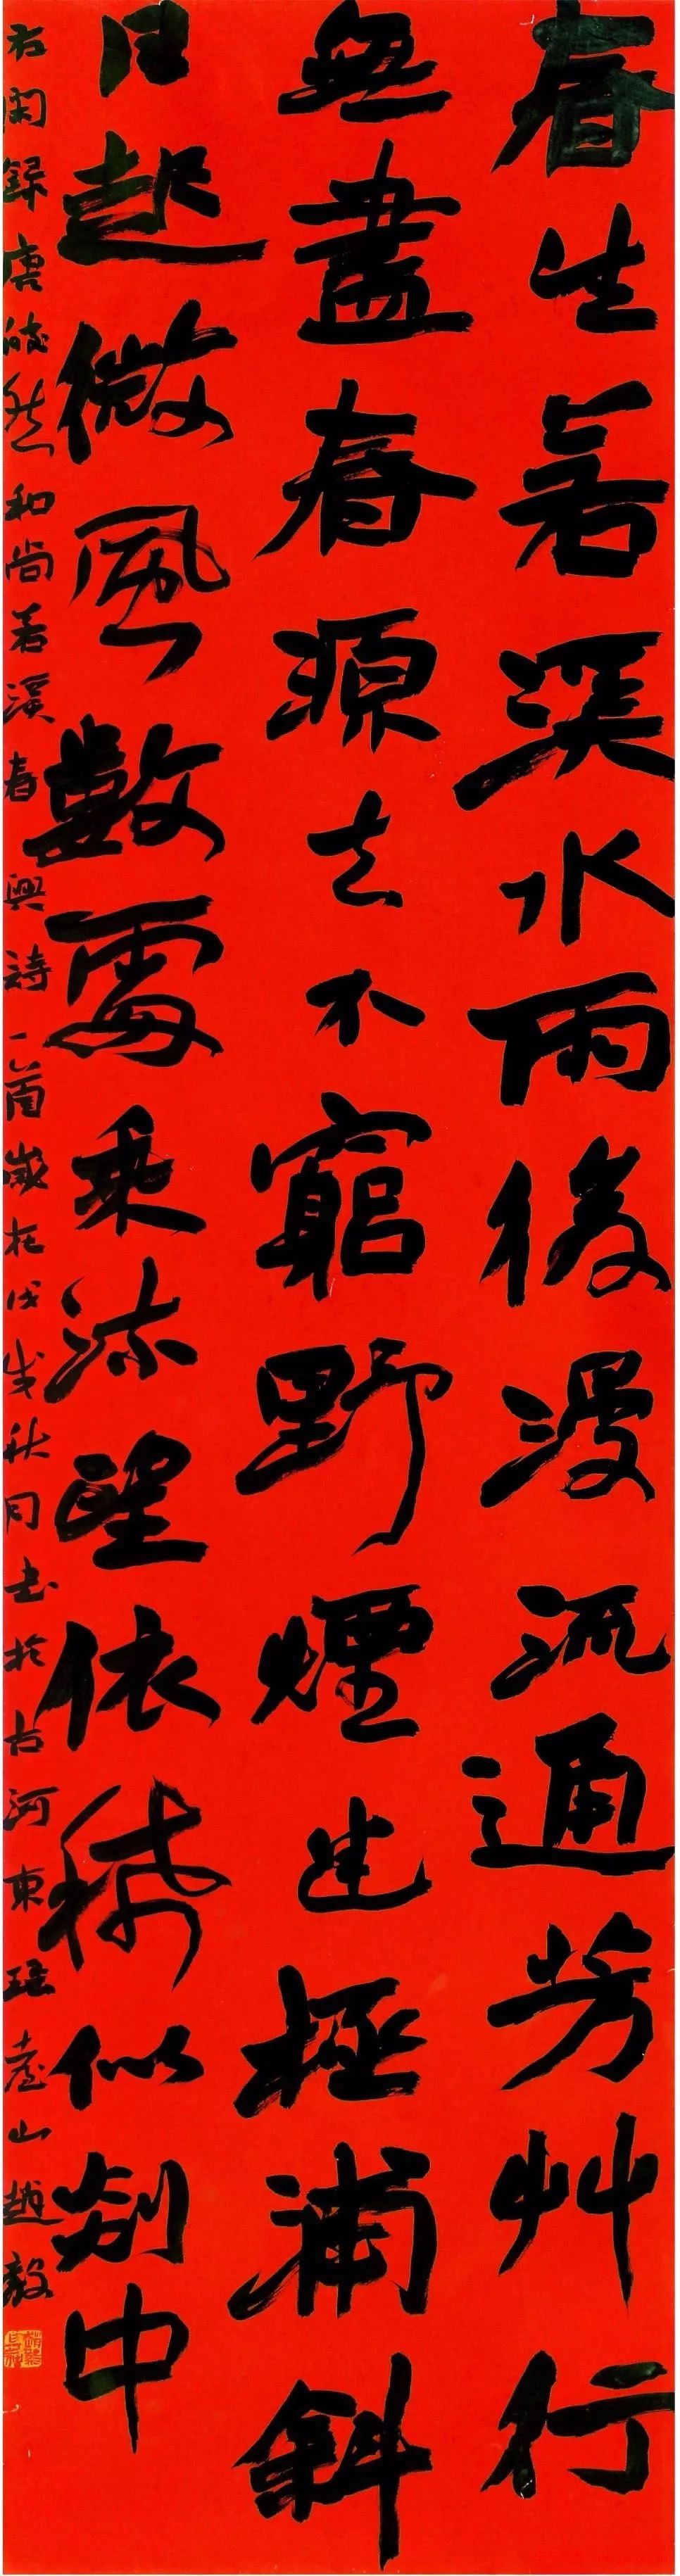 春生若溪水雨後漫流通芳艸行
無盡春源去不窮野煙迷極浦斜
日起微風數處乘流望依稀似剡中
右閑錄唐皎然和尚若溪春興詩一首歲在戊戌秋月書於古河東瑶臺山趙毅